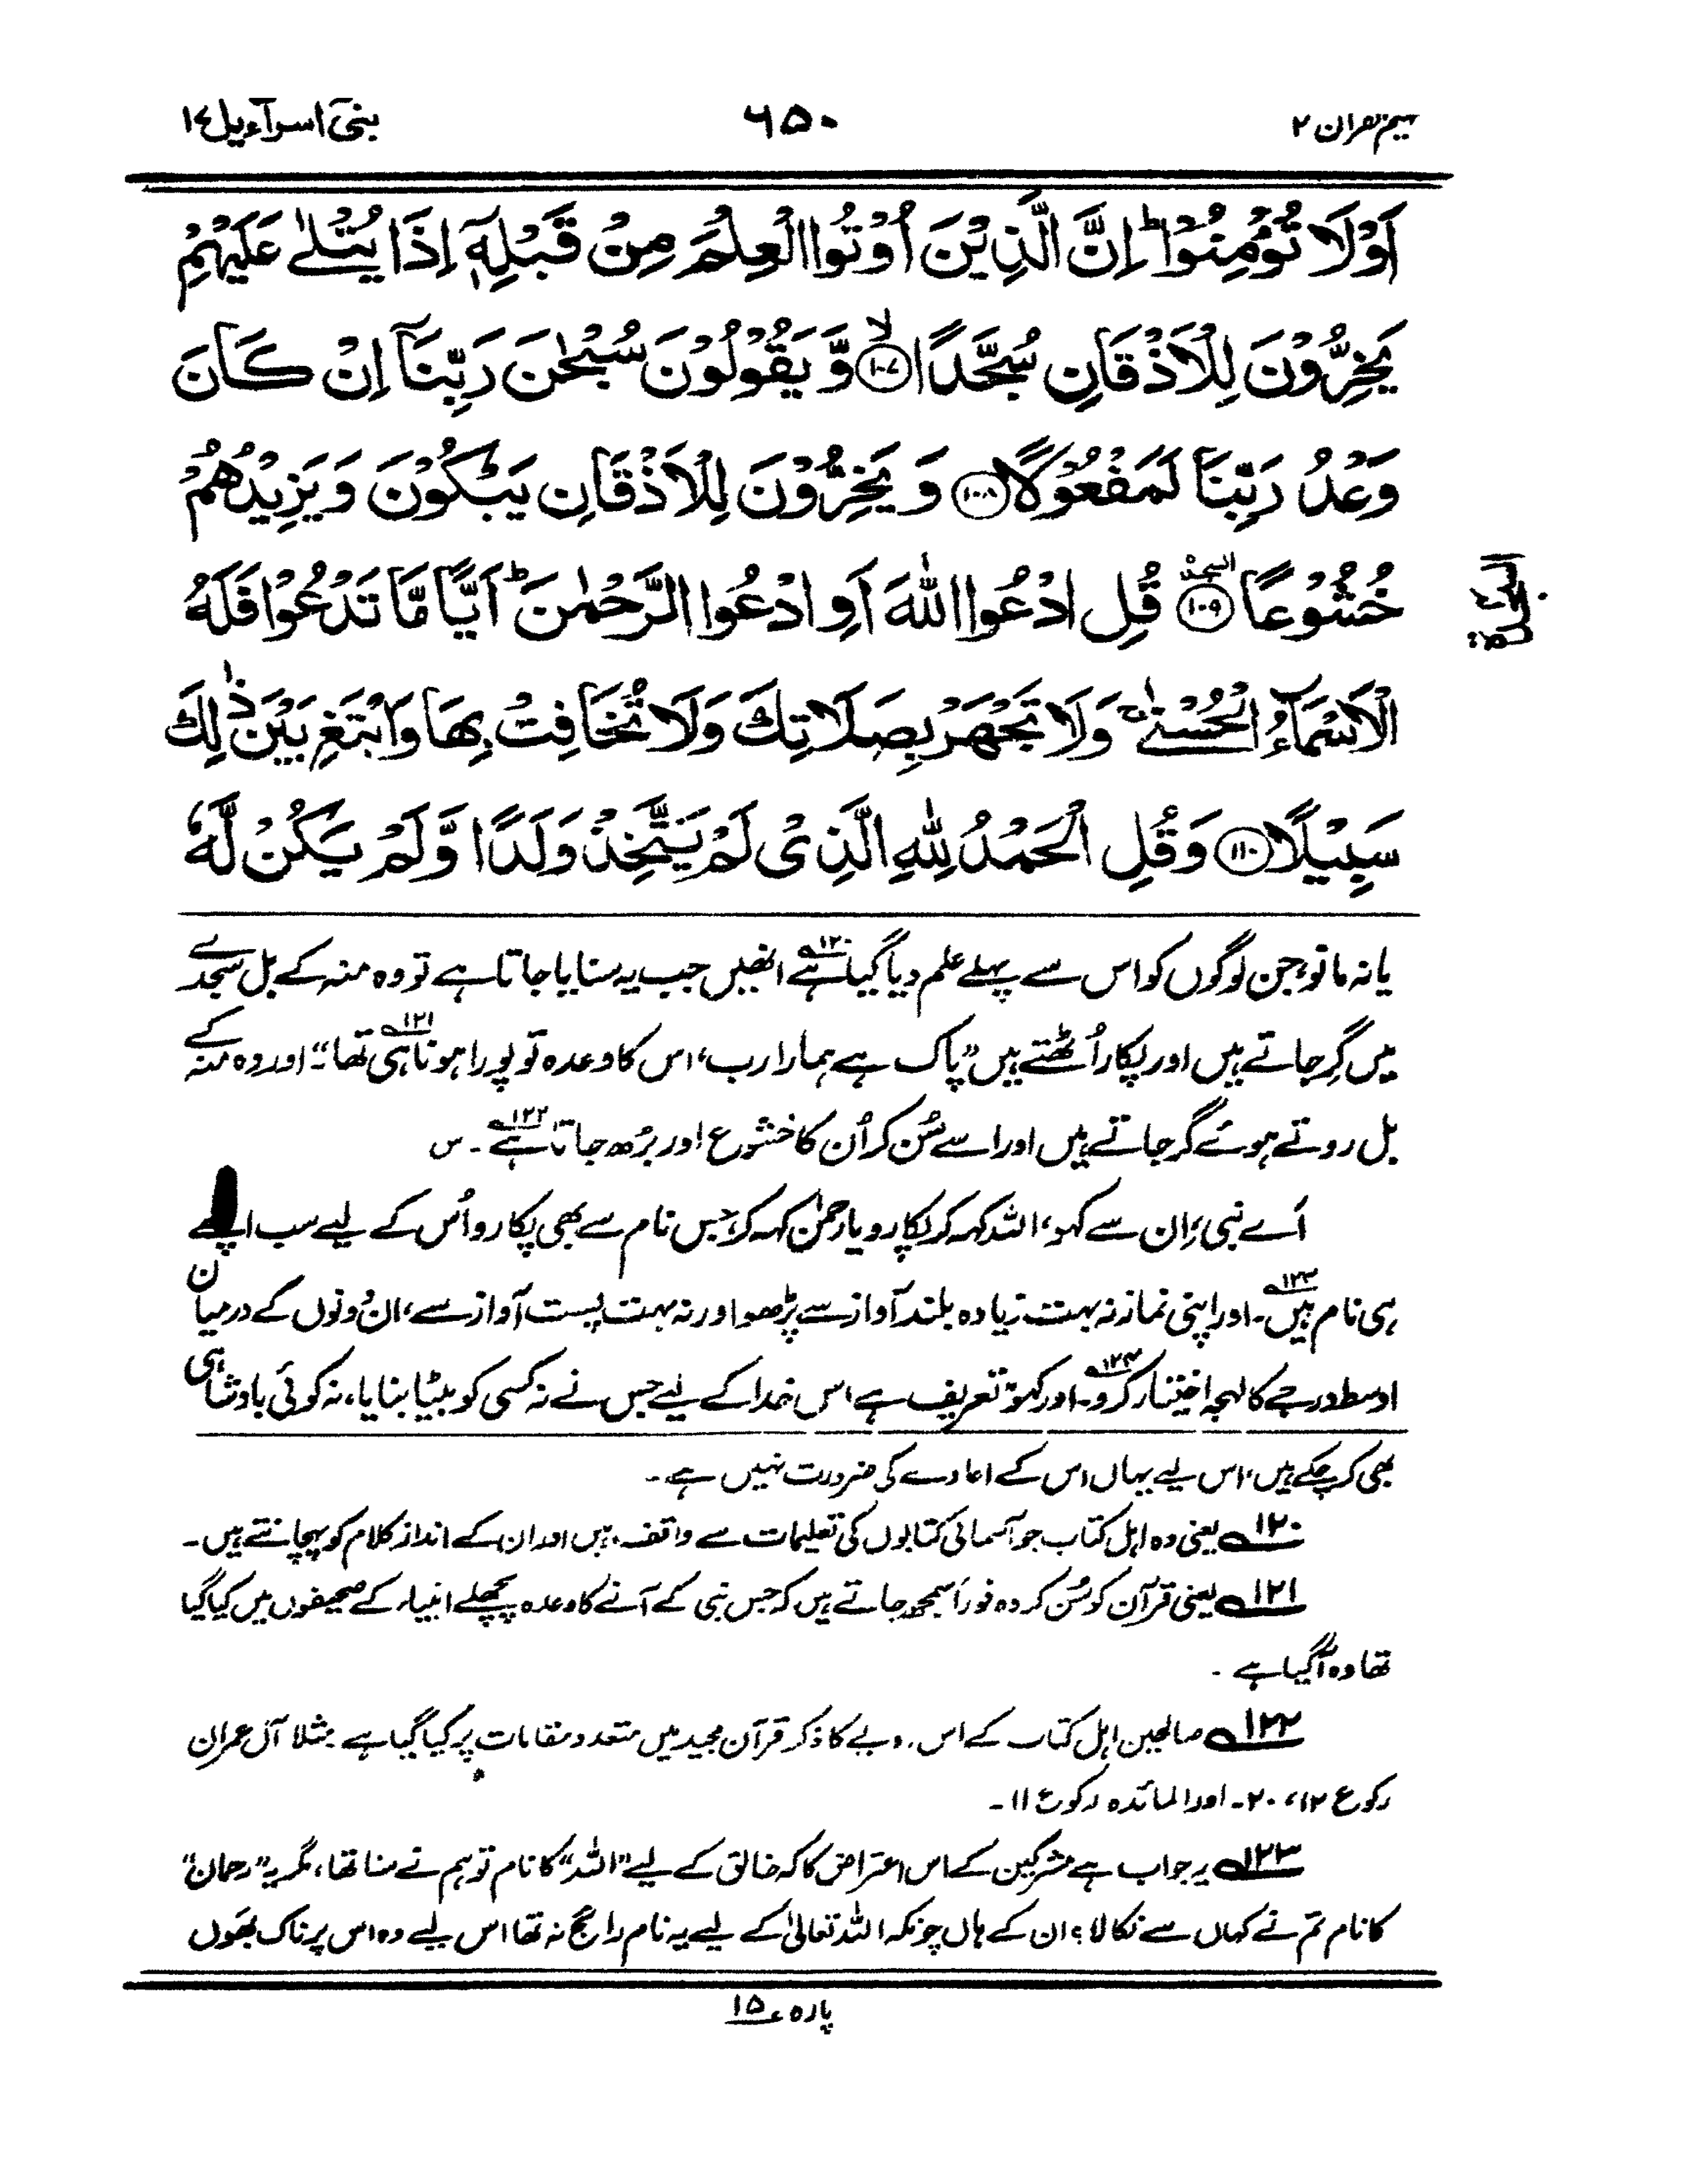 تفہیم القرآن ۲
۶۵۰
بنیٓ اسرآءیل ۱۷
اَوْ لَا تُؤْمِنُوْا ؕ اِنَّ الَّذِیْنَ اُوْتُوا الْعِلْمَ مِنْ قَبْلِهٖۤ اِذَا یُتْلٰی عَلَیْهِمْ
یَخِرُّوْنَ لِلْاَذْقَانِ سُجَّدًا ۙ﴿۱۰۷﴾ وَّ یَقُوْلُوْنَ سُبْحٰنَ رَبِّنَاۤ اِنْ كَانَ
وَعْدُ رَبِّنَا لَمَفْعُوْلًا ﴿۱۰۸﴾ وَ یَخِرُّوْنَ لِلْاَذْقَانِ یَبْكُوْنَ وَ یَزِیْدُهُمْ
خُشُوْعًا ﴿۱۰۹﴾ السجدۃ قُلِ ادْعُوا اللّٰهَ اَوِ ادْعُوا الرَّحْمٰنَ ؕ اَیًّا مَّا تَدْعُوْا فَلَهُ
الْاَسْمَآءُ الْحُسْنٰی ۚ وَ لَا تَجْهَرْ بِصَلَاتِكَ وَ لَا تُخَافِتْ بِهَا وَ ابْتَغِ بَیْنَ ذٰلِكَ
سَبِیْلًا ﴿۱۱۰﴾ وَ قُلِ الْحَمْدُ لِلّٰهِ الَّذِیْ لَمْ یَتَّخِذْ وَلَدًا وَّ لَمْ یَكُنْ لَّهٗ
یا نہ مانو، جن لوگوں کو اس سے پہلے علم دیا گیا ہے ۱۲۰ انھیں جب یہ سنایا جاتا ہے تو وہ منہ کے بل سجدے
میں گِر جاتے ہیں اور پکار اُٹھتے ہیں ”پاک ہے ہمارا رب، اس کا وعدہ تو پورا ہونا ہی تھا“ ۱۲۱ اور وہ منہ کے
بل روتے ہوئے گر جاتے ہیں اور اسے سُن کر اُن کا خشوع اور بڑھ جاتا ہے ۱۲۲۔ س
اَے نبی، اِن سے کہو، اللہ کہہ کر پکارو یا رحمٰن کہہ کر، جس نام سے بھی پکارو اُس کے لیے سب اچھے
ہی نام ہیں ۱۲۳۔ اور اپنی نماز نہ بہت زیادہ بلند آواز سے پڑھو اور نہ بہت پست آواز سے، ان دونوں کے درمیان
اوسط درجے کا لہجہ اختیار کرو ۱۲۴۔ اور کہو ”تعریف ہے اس خدا کے لیے جس نے نہ کسی کو بیٹا بنایا، نہ کوئی بادشاہی
بھی کر چکے ہیں، اس لیے یہاں اس کے اعادے کی ضرورت نہیں ہے۔
۱۲۰ یعنی وہ اہل کتاب جو آسمانی کتابوں کی تعلیمات سے واقف ہیں اور ان کے انداز کلام کو پہچانتے ہیں۔
۱۲۱ یعنی قرآن کو سُن کر وہ فوراً سمجھ جاتے ہیں کہ جس نبی کے آنے کا وعدہ پچھلے انبیاء کے صحیفوں میں کیا گیا
تھا وہ آگیا ہے۔
۱۲۲ صالحین اہل کتاب کے اس رویے کا ذکر قرآن مجید میں متعدد مقامات پر کیا گیا ہے مثلاً آل عمران
رکوع ۱۲، ۲۰۔ اور المائدہ رکوع ۱۱۔
۱۲۳ یہ جواب ہے مشرکین کے اس اعتراض کا کہ خالق کے لیے ”اللہ“ کا نام تو ہم نے سنا تھا، مگر یہ ”رحمان“
کا نام تم نے کہاں سے نکالا؟ ان کے ہاں چونکہ اللہ تعالیٰ کے لیے یہ نام رائج نہ تھا اس لیے وہ اس پر ناک بھَوں
پارہ ۱۵